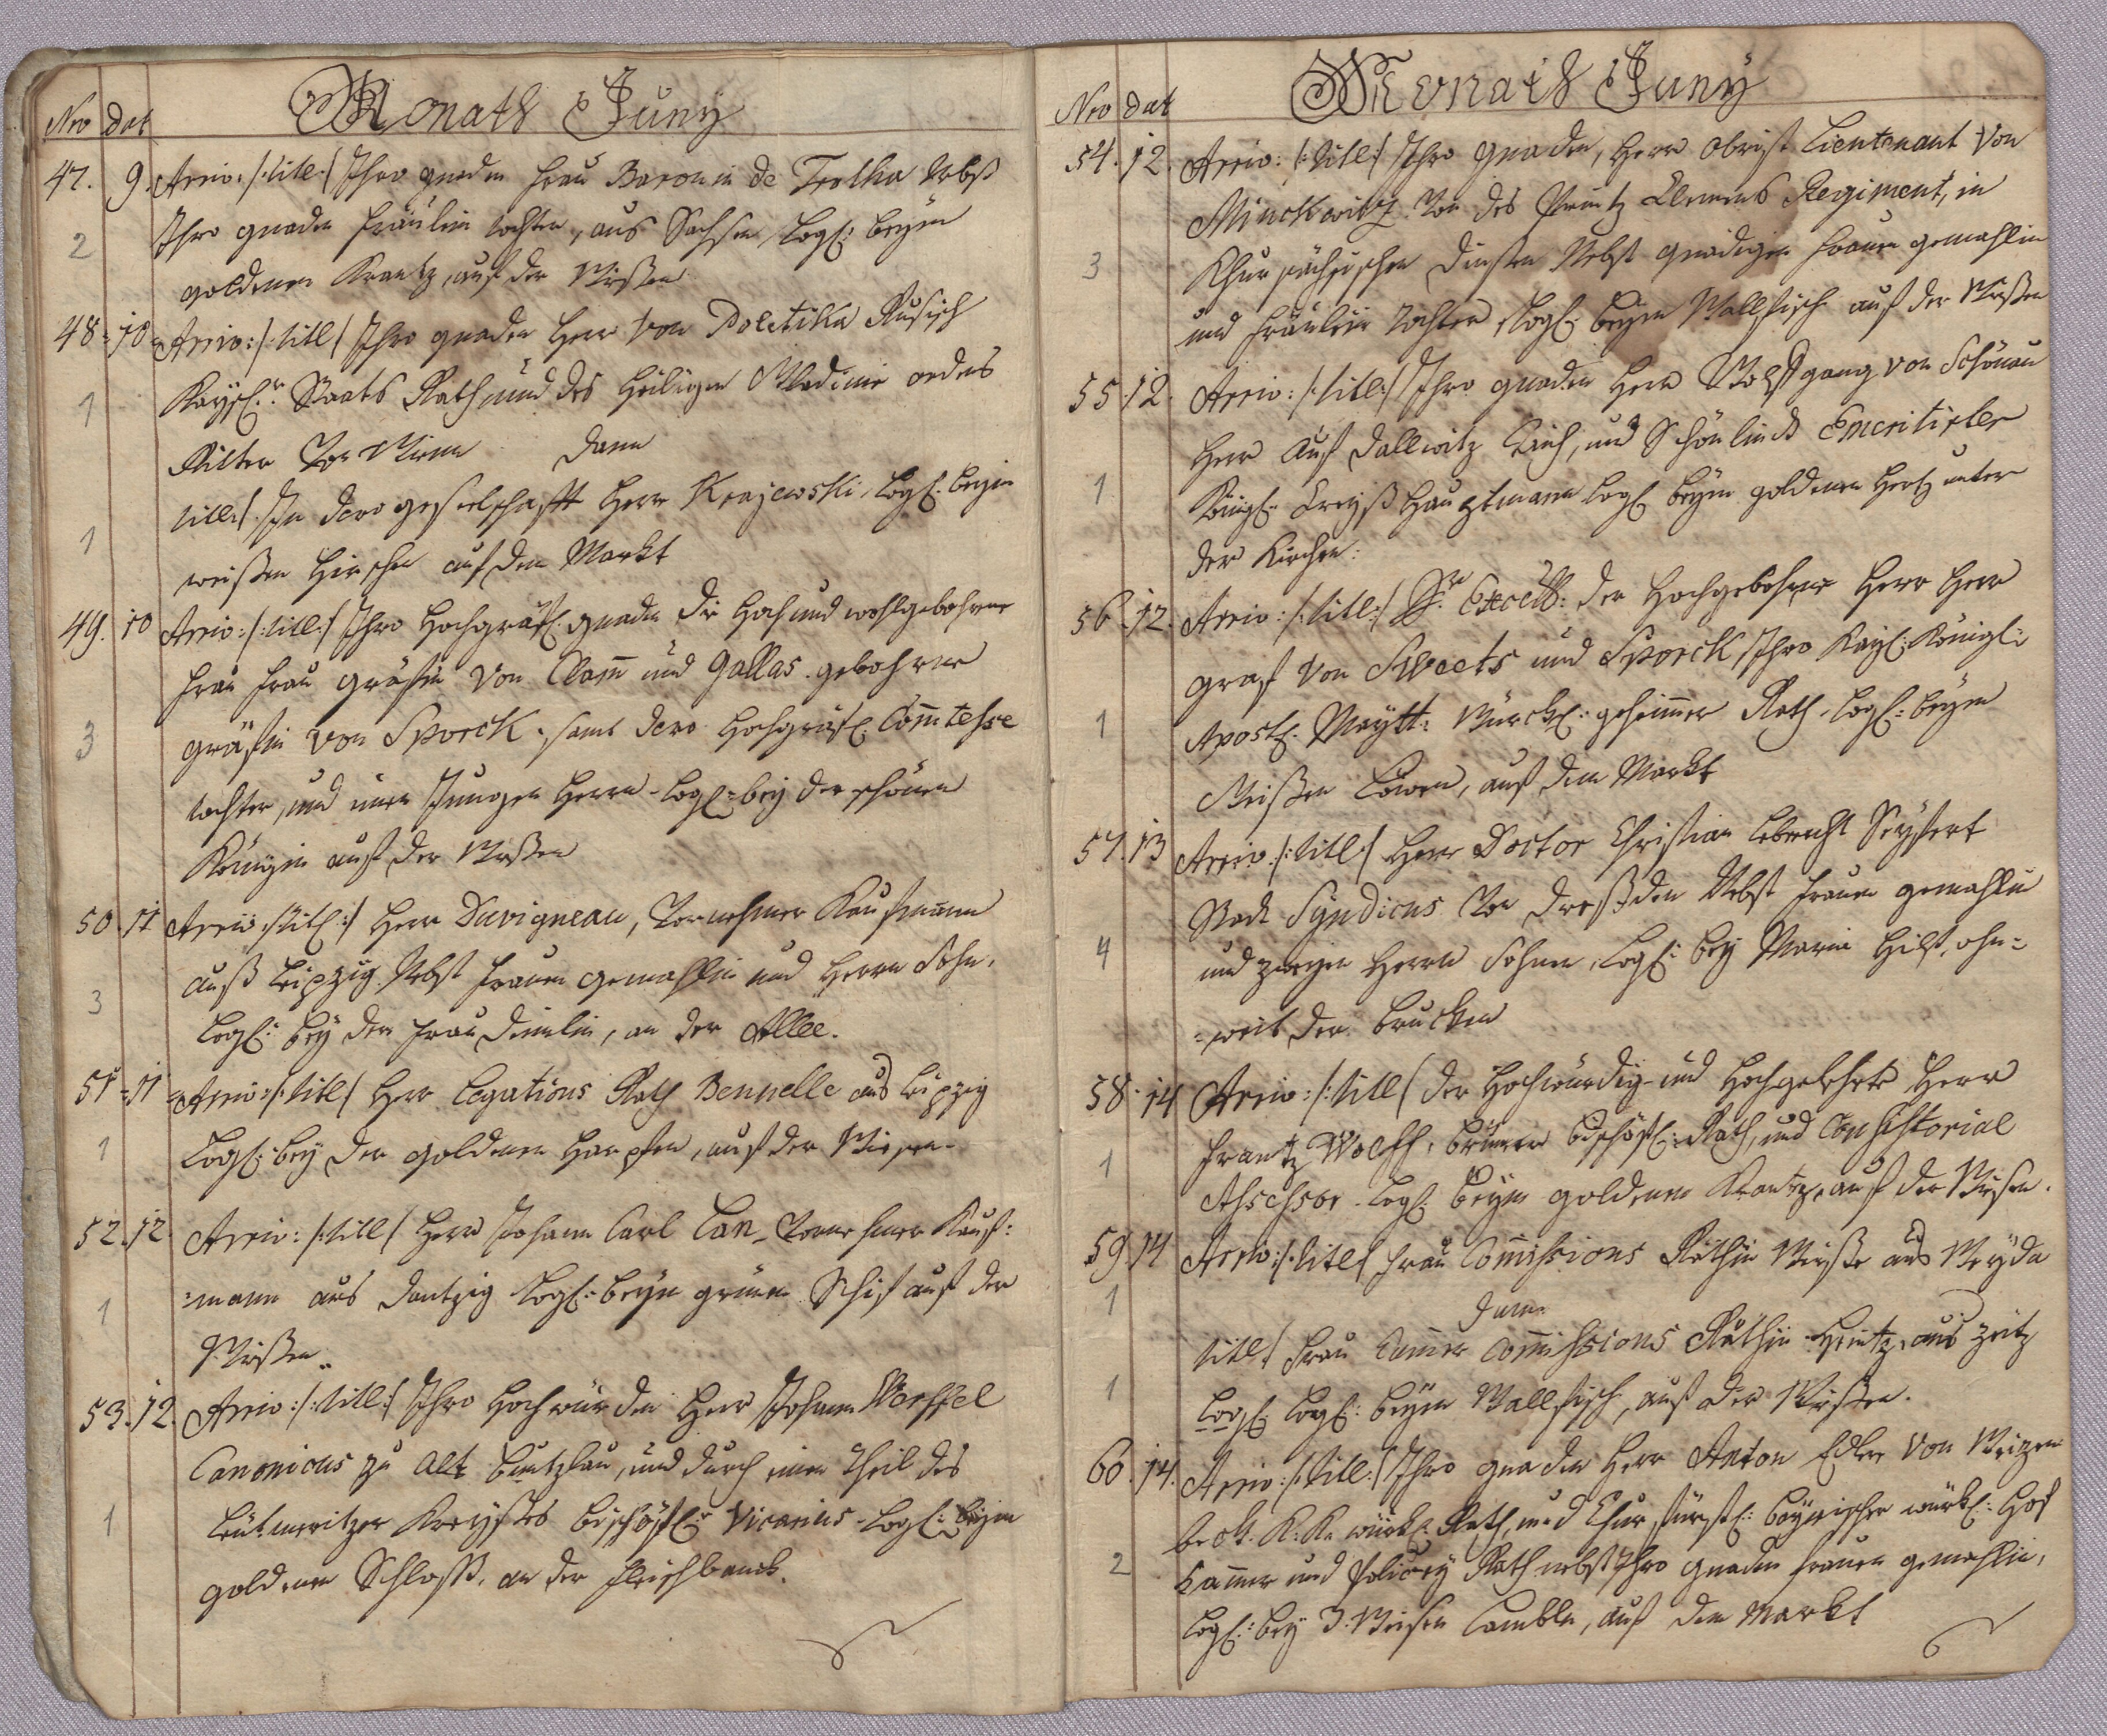 Monath Juny
Nro dat
47. 9. Arriv: /:titl:/ Ihro gnaden Frau Baronin de Trotha Nebst
Ihro gnaden Fräulein tochter, aus Sachsen, Logl: beÿm
2
goldenen Krantz, auf der Wießen
48 = 10 = Arriv: /:titl/ Ihro gnaden Herr von Poletika Rusisch
Kaÿsl.r Staats Rath und des Heiligen Wladimir ordens
1
Ritter Von Wienn dann
titl:/ In dero geselschafft Herr Krajewski, Logl: beÿm
1
weißen Hirschen auf dem Markt
49. 10 Arriv: /:titl:/ Ihro Hochgräfl. gnaden die Hoch und wohlgebohrne
Frau Frau gräfin von Clam̅ und Gallas. gebohrne
3
gräfin von Sporck. samt dero Hochgräfl: Com̅tesse
tochter, und einen Jungen Herrn - Logl: beÿ der schönen
Königin auf der Wießen
50. 11 Arriv: /:titl:/ Herr Duvigneau, Vornehmer Kaufmann
auß Leipzig Nebst Frauen gemahlin und Herrn Sohn.
3
Logl: beÿ der Frau, an der Allee.
51 = 11 = Arriv: /:titl/ Herr Legations Rath Bennelle aus Leipzig
1
Logl: beÿ der goldenen Harpfen, auf der Wiesen.
52. 12. Arriv: /:titl/ Herr Johann Carl Can, Vornehmer Kauf:
1
:mann aus Dantzig Logl: beÿm grünen Schif auf der
Wießen.
53. 12. Arriv: /:titl:/ Ihro Hochwürden Herr Johann Woeffel
Canonicus zu Alt buntzlau, und durch einen Theil des
1
Leütmeritzer Kreÿses bischöfl.r Vicarius - Logl: beÿm
goldenen Schloss, an der Fleischbanck.
Monath Juny
Nro dat
54. 12. Arriv: /:titl:/ Ihro Gnaden, Herr Obrist Lieutenant von
Minckwitz Von des Printz Clemens Regiment, in
3
Chursächsischen Diensten Nebst Gnädigen Frauen gemahlin
und Fräulein Tochter, Logl: beÿm Wallfisch auf der Wießen
55. 12. Arriv: /:titl:/ Ihro gnaden Herr Wolfgang von Schönau
Herr auf Dallwitz, und Schönlind Emeritirter
1
Königl. Creÿß Hauptmann Logl: beÿm goldenen Hertz unter
der Kirchen:
56. 12. Arriv: /:titl:/ Sr. Excell: der Hochgebohrne Herr Herr
graf von Sweets und Sporck, Ihro Kaÿl: Königl:
1
Apostl. Maÿtt: Würckl: geheimmer Rath. Logl: beÿm
Weißen Löwen, auf dem Markt
57. 13 Arriv: /:titl:/ Herr Doctor Christian Lebrecht Seÿfert
Stadt Syndicus Von Dreßden Nebst Frauen gemahlin
4
und zweÿen Herrn Söhnen, Logl: beÿ Maria Hilf, ohn=
=weit der brucken
58. 14 Arriv: /:titl/ der Hochwürdig und Hochgelehrte Herr
Frantz Wolff, brünner bischöfl: Rath, und Consistorial
1
Assessor. Logl: beÿm goldenen Krantz, auf der Wiesen.
59. 14 Arriv: /:titl/ Frau Com̅issions Räthin Wieße aus Weÿda
1
dann
titl:/ Frau Cam̅er Com̅issions Räthin Heintz, aus Zeitz
1
Logl: Logl: beÿm Wallfisch, auf der Wießen.
60. 14. Arriv: /:titl:/ Ihro gnaden Herr Anton Edler von Weizen
beck. K: K: würkl: Rath, und Churfürstl: baÿrischer würkl: Hof
2
Cammer und Policeÿ Rath nebst Ihro gnaden Frauen gemahlin,
Logl: beÿ 3. Weisen Lambln, auf dem Markt